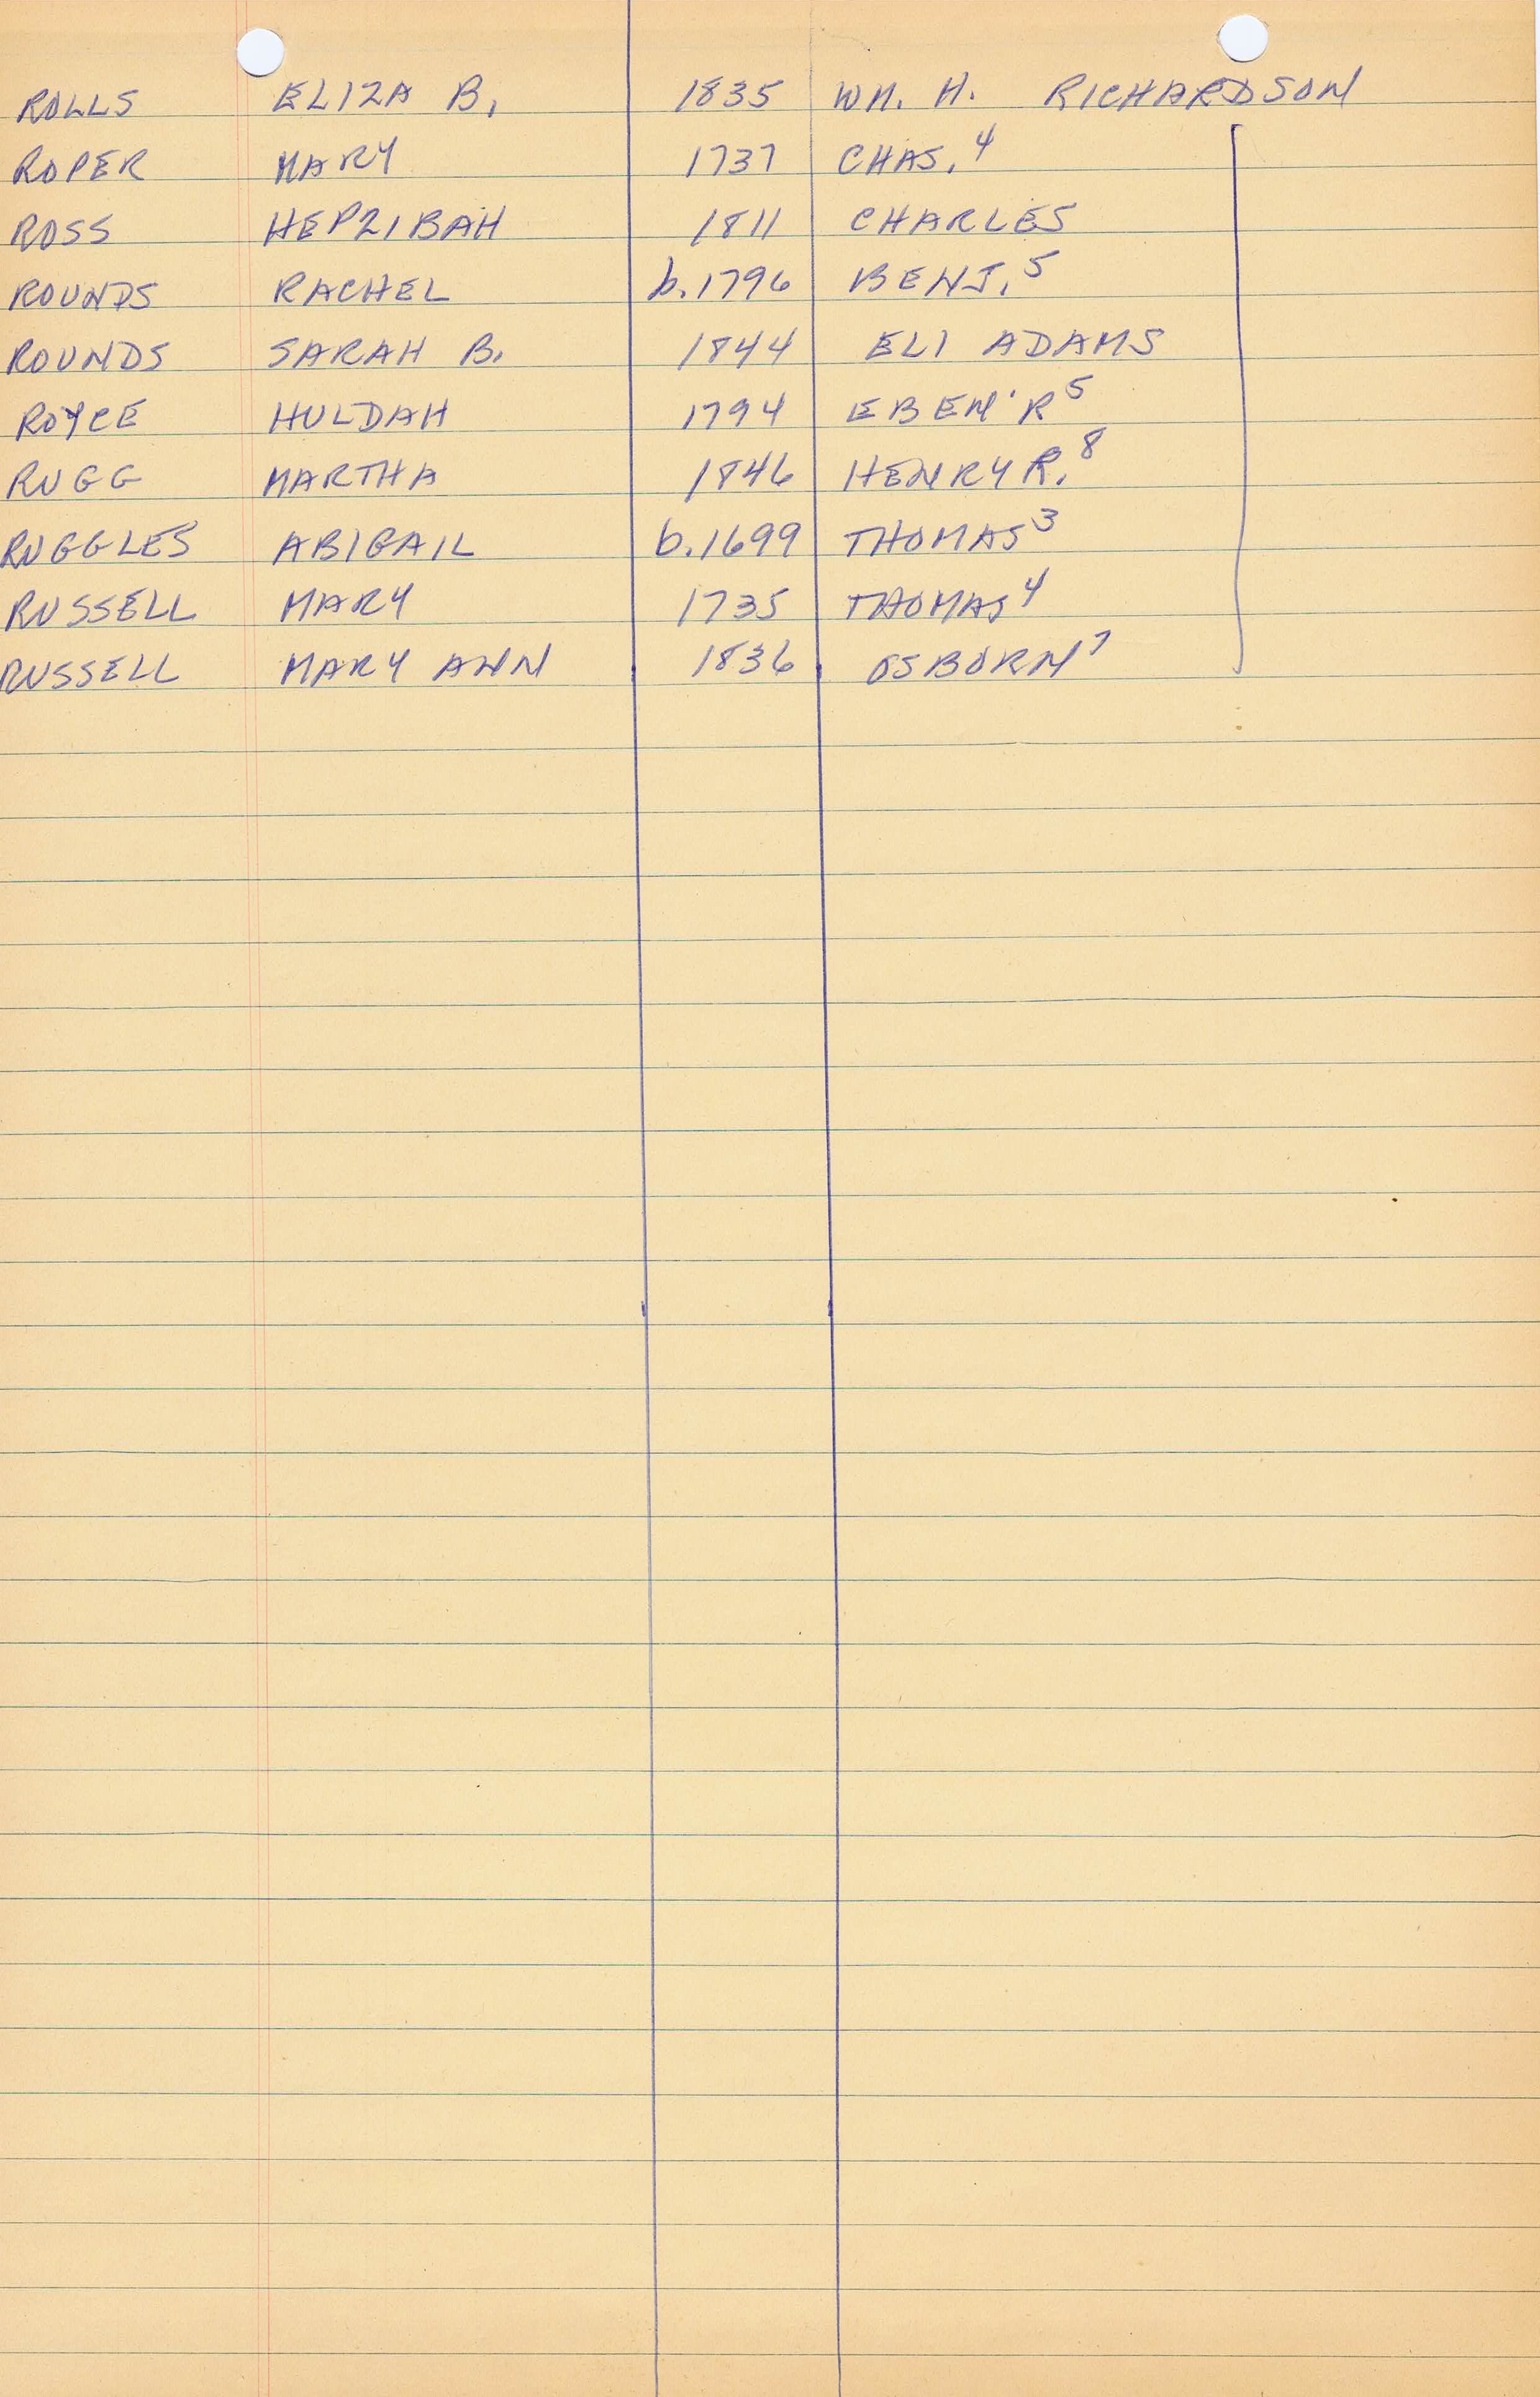 ROLLS ELIZA B. 1835 WM. H. RICHARDSON
ROPER MARY 1737 CHAS.⁴
ROSS HEPZIBAH 1811 CHARLES
ROUNDS RACHEL b.1796 BENJ.⁵
ROUNDS SARAH B. 1844 ELI ADAMS
ROYCE HULDAH 1794 EBEN'R⁵
RUGG MARTHA 1846 HENRY R.⁸
RUGGLES ABIGAIL b.1699 THOMAS³
RUSSELL MARY 1735 THOMAS⁴
RUSSELL MARY ANN 1836 OSBORN⁷